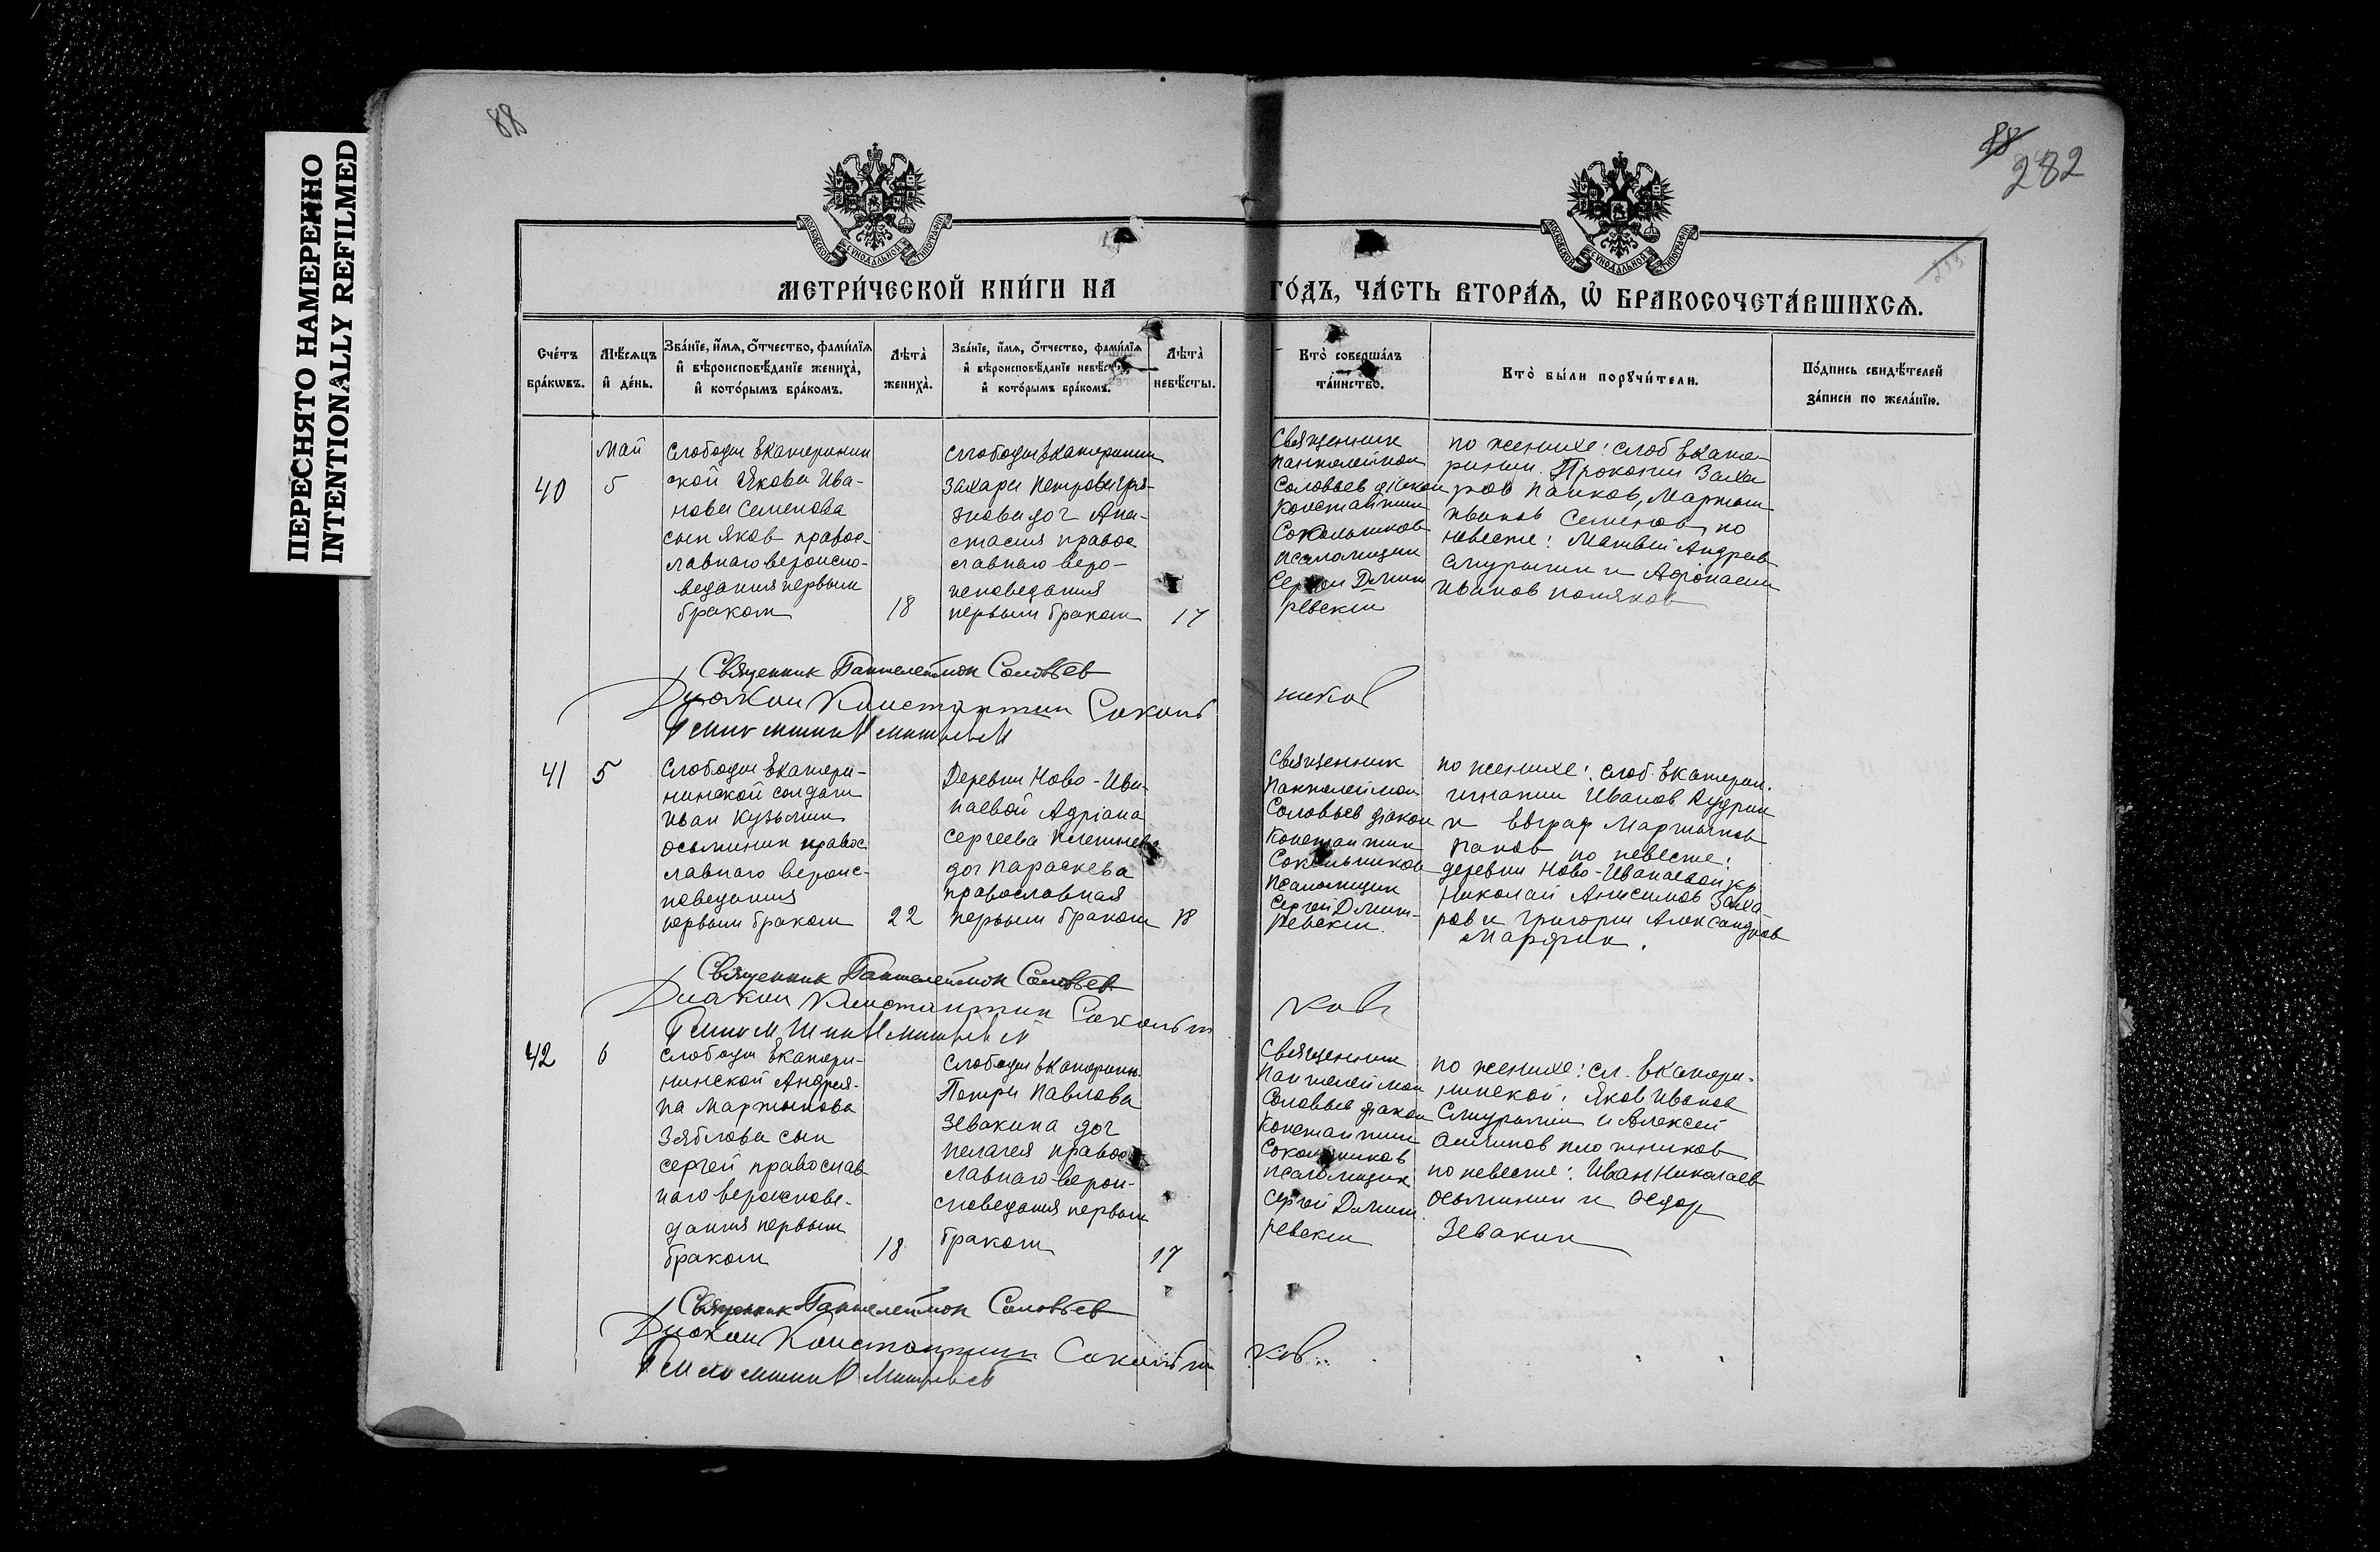 ПЕРЕСНЯТО НАМЕРЕННО
INTENTIONALLY REFILMED
88
88
282
МОСКОВСКОЙ СѴНОДАЛЬНОЙ ТИПОГРАФІИ
МОСКОВСКОЙ СѴНОДАЛЬНОЙ ТИПОГРАФІИ
МЕТРИ́ЧЕСКОЙ КНИ́ГИ НА
ГО́ДЪ, ЧА́СТЬ ВТОРА́Ѧ, Ѽ БРАКОСОЧЕТА́ВШИХСѦ.
Сче́тъ
бра́кѡвъ.
Мѣ́сяцъ
и҆ де́нь.
Зва́нїе, и҆́мѧ, ѻ҆́тчество, фами́лїѧ
и҆ вѣроисповѣ́данїе жениха̀,
и҆ кото́рымъ бра́комъ.
Лѣта̀
жениха̀.
Зва́нїе, и҆́мѧ, ѻ҆́тчество, фами́лїѧ
и҆ вѣроисповѣ́данїе невѣ́сты,
и҆ кото́рымъ бра́комъ.
Лѣта̀
невѣ́сты.
Кто̀ соверша́лъ
та́инство.
Кто̀ бы́ли порꙋчи́тели.
По́дпись свидѣ́телей
за́писи по жела́нїю.
40
май
5
Слободы Екатеринин
ской Якова Ива-
нова Семенова
сын Яков правос-
лавнаго вероиспо-
ведания первым
браком
18
слободы Екатеринин
Захара Петрова
дог Ана-
стасия правос
славнаго веро-
исповедания
первым браком
17
Священник
Пантелеймон
Соловьев діакон
Константин
Сокольников
псаломщик
Сергей Дмит
ревскій
по женихе: слоб Екате-
ринин. Прокопий Заха
ров Панков, Мартын
Иванов Семенов, по
невесте: Матвей Андреев
Стурыгин и Афонасий
Иванов Поляков
Священник Пантелеймон Соловьев
Диакон Константин Соколь
ников
41
5
Слободы Екатери-
нинской солдат
Иван Кузьмин
Осьминин правос
лавнаго вероис-
поведания
первым браком
22
Деревни Ново-Ива-
наевой Адріана
Сергеева
дог Параскева
православная
первым браком
18
Священник
Пантелеймон
Соловьев діакон
Константин
Сокольников
псаломщик
Сергей Дмит-
ревскій.
по женихе: слоб. Екатерин.
Игнатий Иванов Кудрин
и Евграф Мартынов
Панов по невесте:
деревни Ново-Иванаевой кр
Николай Анисимов Заха-
ров и Григорий Александров
Марфин.
Священник Пантелеймон Соловьев
Диакон Константин Сокольни
ков
42
6
Слободы Екатери-
нинской Андрея-
на Мартынова
Зяблова сын
Сергей православ
наго вероиспове-
дания первым
браком
18
Слободы Екатеринин.
Петра Павлова
Зевакина дог
Пелагея правос
славнаго верои-
споведания первым
браком
17
Священник
Пантелеймон
Соловьев діакон
Константин
Сокольников
псаломщик
Сергей Дмит
ревскій
по женихе: сл. Екатери-
нинской: Яков Иванов
Стурыгин и Алексей
Плотников
по невесте: Иван Николаев
Осьминин и Федор
Зевакин
Священник Пантелеймон Соловьев
Диакон Константин Сокольни
ков